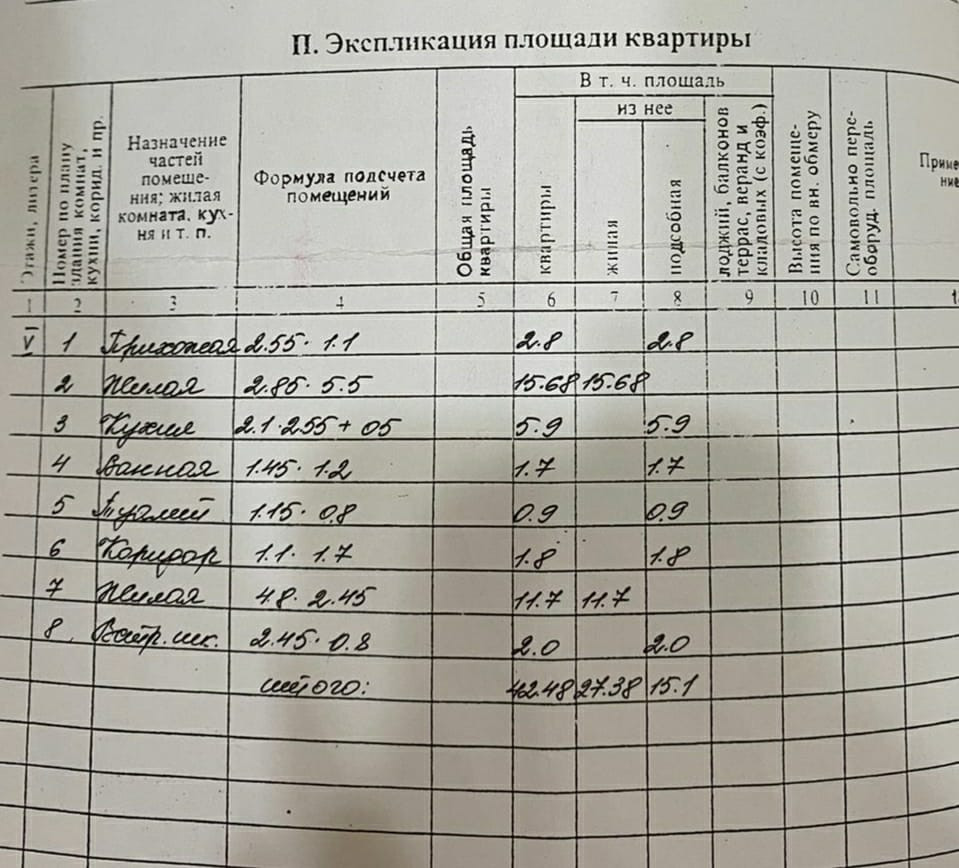 П. Экспликация площади квартиры
Этажи, литера
Номер по плану здания комнат, кухни, корид. и пр.
Назначение частей помеще- ния; жилая комната, кух- ня и т. п.
Формула подсчета помещений
Общая площадь квартиры
В т. ч. площадь
квартиры
из нее
жилая
подсобная
лоджий, балконов террас, веранд и кладовых (с коэф.)
Высота помеще- ния по вн. обмеру
Самовольно пере- оборуд. площадь
Приме ние
1 2 3 4 5 6 7 8 9 10 11 1
VI 1 Прихожая 2.55 · 1.1 2.8 2.8
2 Жилая 2.85 · 5.5 15.68 15.68
3 Кухня 2.1 · 2.55 + 05 5.9 5.9
4 Ванная 1.45 · 1.2 1.7 1.7
5 Туалет 1.15 · 0.8 0.9 0.9
6 Коридор 1.1 · 1.7 1.8 1.8
7 Жилая 4.8 · 2.45 11.7 11.7
8 Встр. шк. 2.45 · 0.8 2.0 2.0
итого: 42.48 27.38 15.1